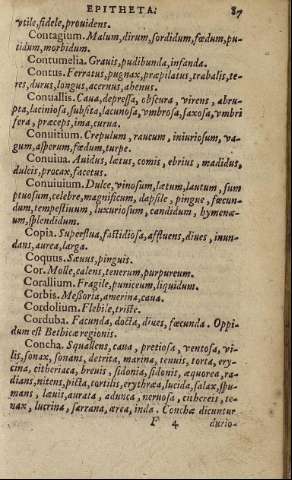 EPITHETA. 87
vtile, fidele, prouidens.
Contagium. Malum, dirum, sordidum, fœdum, pu-
tidum, morbidum.
Contumelia. Grauis, pudibunda, infanda.
Contus. Ferratus, pugnax, præpilatus, trabalis, te-
res, durus, longus, acernus, ahenus.
Conuallis. Caua, depressa, obscura, virens, abru-
pta, lutinosa, subsita, lacunosa, vmbrosa, saxosa, vmbri
fera, præceps, ima, curua.
Conuitium. Crepulum, raucum, iniuriosum, va-
gum, asperum, fœdum, turpe.
Conuiua. Auidus, lætus, comis, ebrius, madidus,
dulcis, procax, facetus.
Conuiuium. Dulce, vinosum, lætum, lautum, sum
ptuosum, celebre, magnificum, dapsile, pingue, fœcun-
dum, tempestiuum, luxuriosum, candidum, hymenæ-
um, splendidum.
Copia. Superflua, fastidiosa, affluens, diues, inun-
dans, aurea, larga.
Coquus. Sæuus, pinguis.
Cor. Molle, calens, tenerum, purpureum.
Corallium. Fragile, puniceum, liquidum.
Corbis. Messoria, amerina, caua.
Cordolium. Flebile, triste.
Corduba. Facunda, docta, diues, fœcunda. Oppi-
dum est Bethicæ regionis.
Concha. Squallens, cana, pretiosa, ventosa, vi-
lis, sonax, sonans, detrita, marina, tenuis, torta, ery-
cina, cithereiaca, breuis, sidonia, sidonis, æquorea, ra-
dians, nitens, picta, tortilis, erythræa, lucida, salax, spu-
mans, læuis, aurata, adunca, neruosa, cithereis, te-
nax, lucrina, sarrana, ærea, inda. Conchæ dicuntur
F 4 durio-